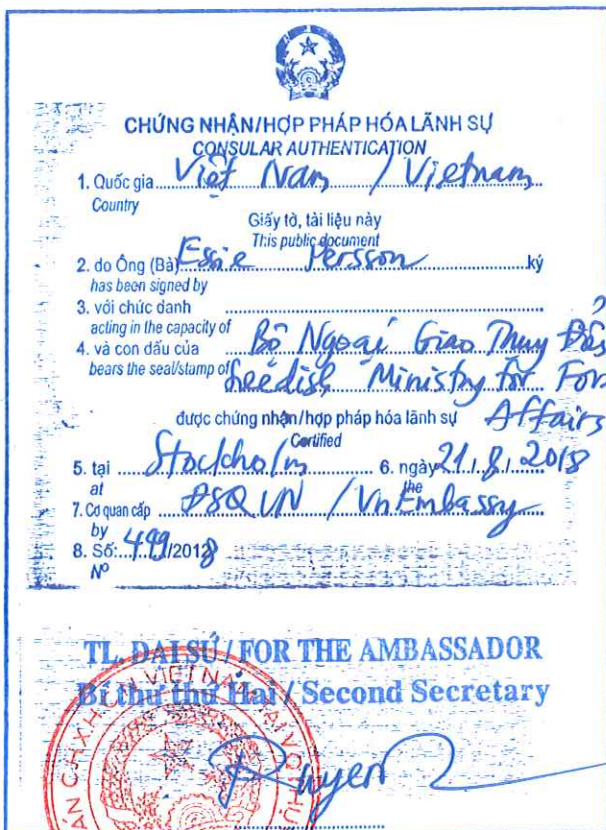 CHỨNG NHẬN/HỢP PHÁP HÓA LÃNH SỰ
CONSULAR AUTHENTICATION
1. Quốc gia Việt Nam / Vietnam
Country
Giấy tờ, tài liệu này
This public document
2. do Ông (Bà) Essie Persson ký
has been signed by
3. với chức danh
acting in the capacity of
4. và con dấu của Bộ Ngoại Giao Thuỵ Điển
bears the seal/stamp of Swedish Ministry for For
Affairs
được chứng nhận/hợp pháp hóa lãnh sự
Certified
5. tại Stockholm 6. ngày 21/8/2018
at the
7. Cơ quan cấp ĐSQ VN / Vn Embassy
by
8. Số: 499/2018
Nº
TL. ĐẠI SỨ / FOR THE AMBASSADOR
Bí thư thứ Hai / Second Secretary